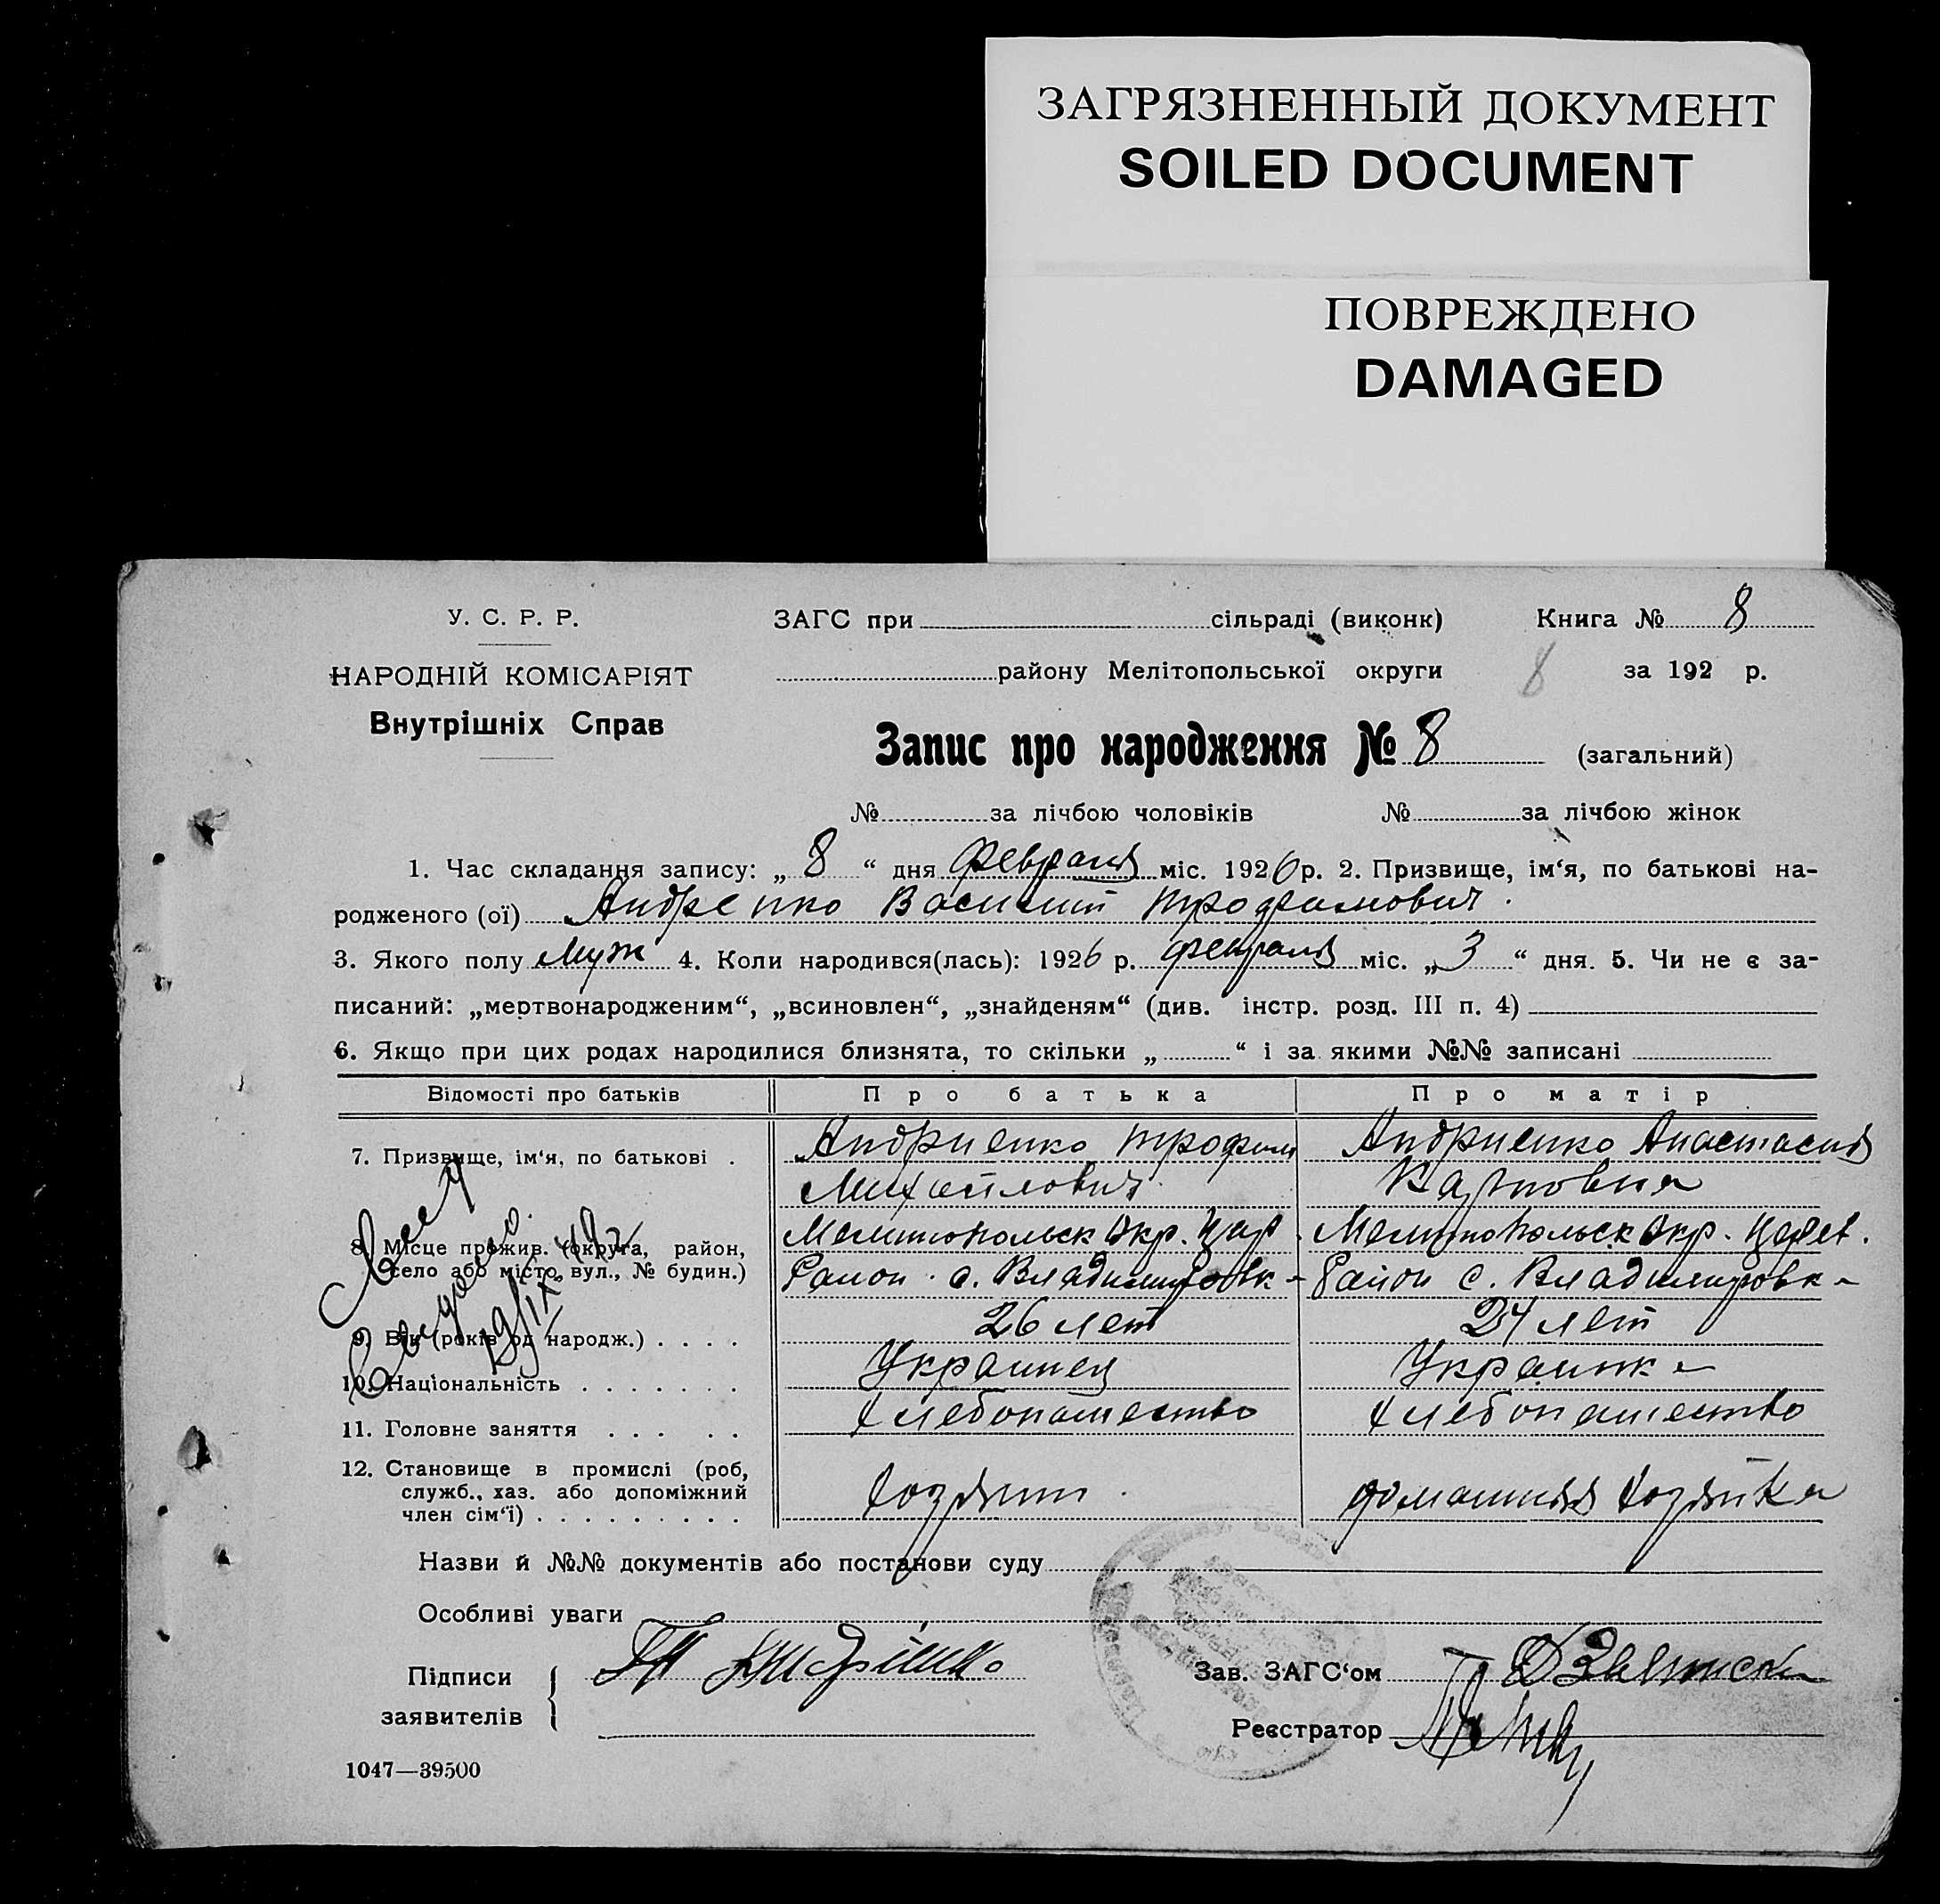 ЗАГРЯЗНЕННЫЙ ДОКУМЕНТ
SOILED DOCUMENT
ПОВРЕЖДЕНО
DAMAGED
У. С. Р. Р.
НАРОДНІЙ КОМІСАРІЯТ
Внутрішніх Справ
ЗАГС при сільраді (виконк)
району Мелітопольської округи
Книга № 8
8 за 192 р.
Запис про народження № 8 (загальний)
№ за лічбою чоловіків № за лічбою жінок
1. Час складання запису: „ 8 “ дня февраля міс. 1926 р. 2. Призвище, ім‘я, по батькові на-
родженого (ої) Андреенко Василий Трофимович.
3. Якого полу муж 4. Коли народився(лась): 1926 р. февраля міс. „ 3 “ дня. 5. Чи не є за-
писаний: „мертвонародженим“, „всиновлен“, „знайденям“ (див. інстр. розд. III п. 4)
6. Якщо при цих родах народилися близнята, то скільки „ “ і за якими №№ записані
Відомості про батьків Про батька Про матір
7. Призвище, ім‘я, по батькові . Андриенко Трофим Андриенко Анастасия
Михайлович Карповна
8. Місце прожив. (округа, район, Мелитопольск Окр. Цар. Мелитопольск Окр. Царев.
село або місто, вул., № будин.) Район. с. Владимировка Район с. Владимировка
9. Вік (років од народж.) . . . . 26 лет 24 лет
10. Національність . . . . . . . Украинец Украинка
11. Головне заняття . . . . . Хлебопашество Хлебопашество
12. Становище в промислі (роб,
служб., хаз. або допоміжний Хозяин. домашняя хозяйка
член сім‘ї) . . . . . . . . .
Назви й №№ документів або постанови суду
Особливі уваги
Підписи
заявителів
Зав. ЗАГС‘ом
Реєстратор
1047—39500